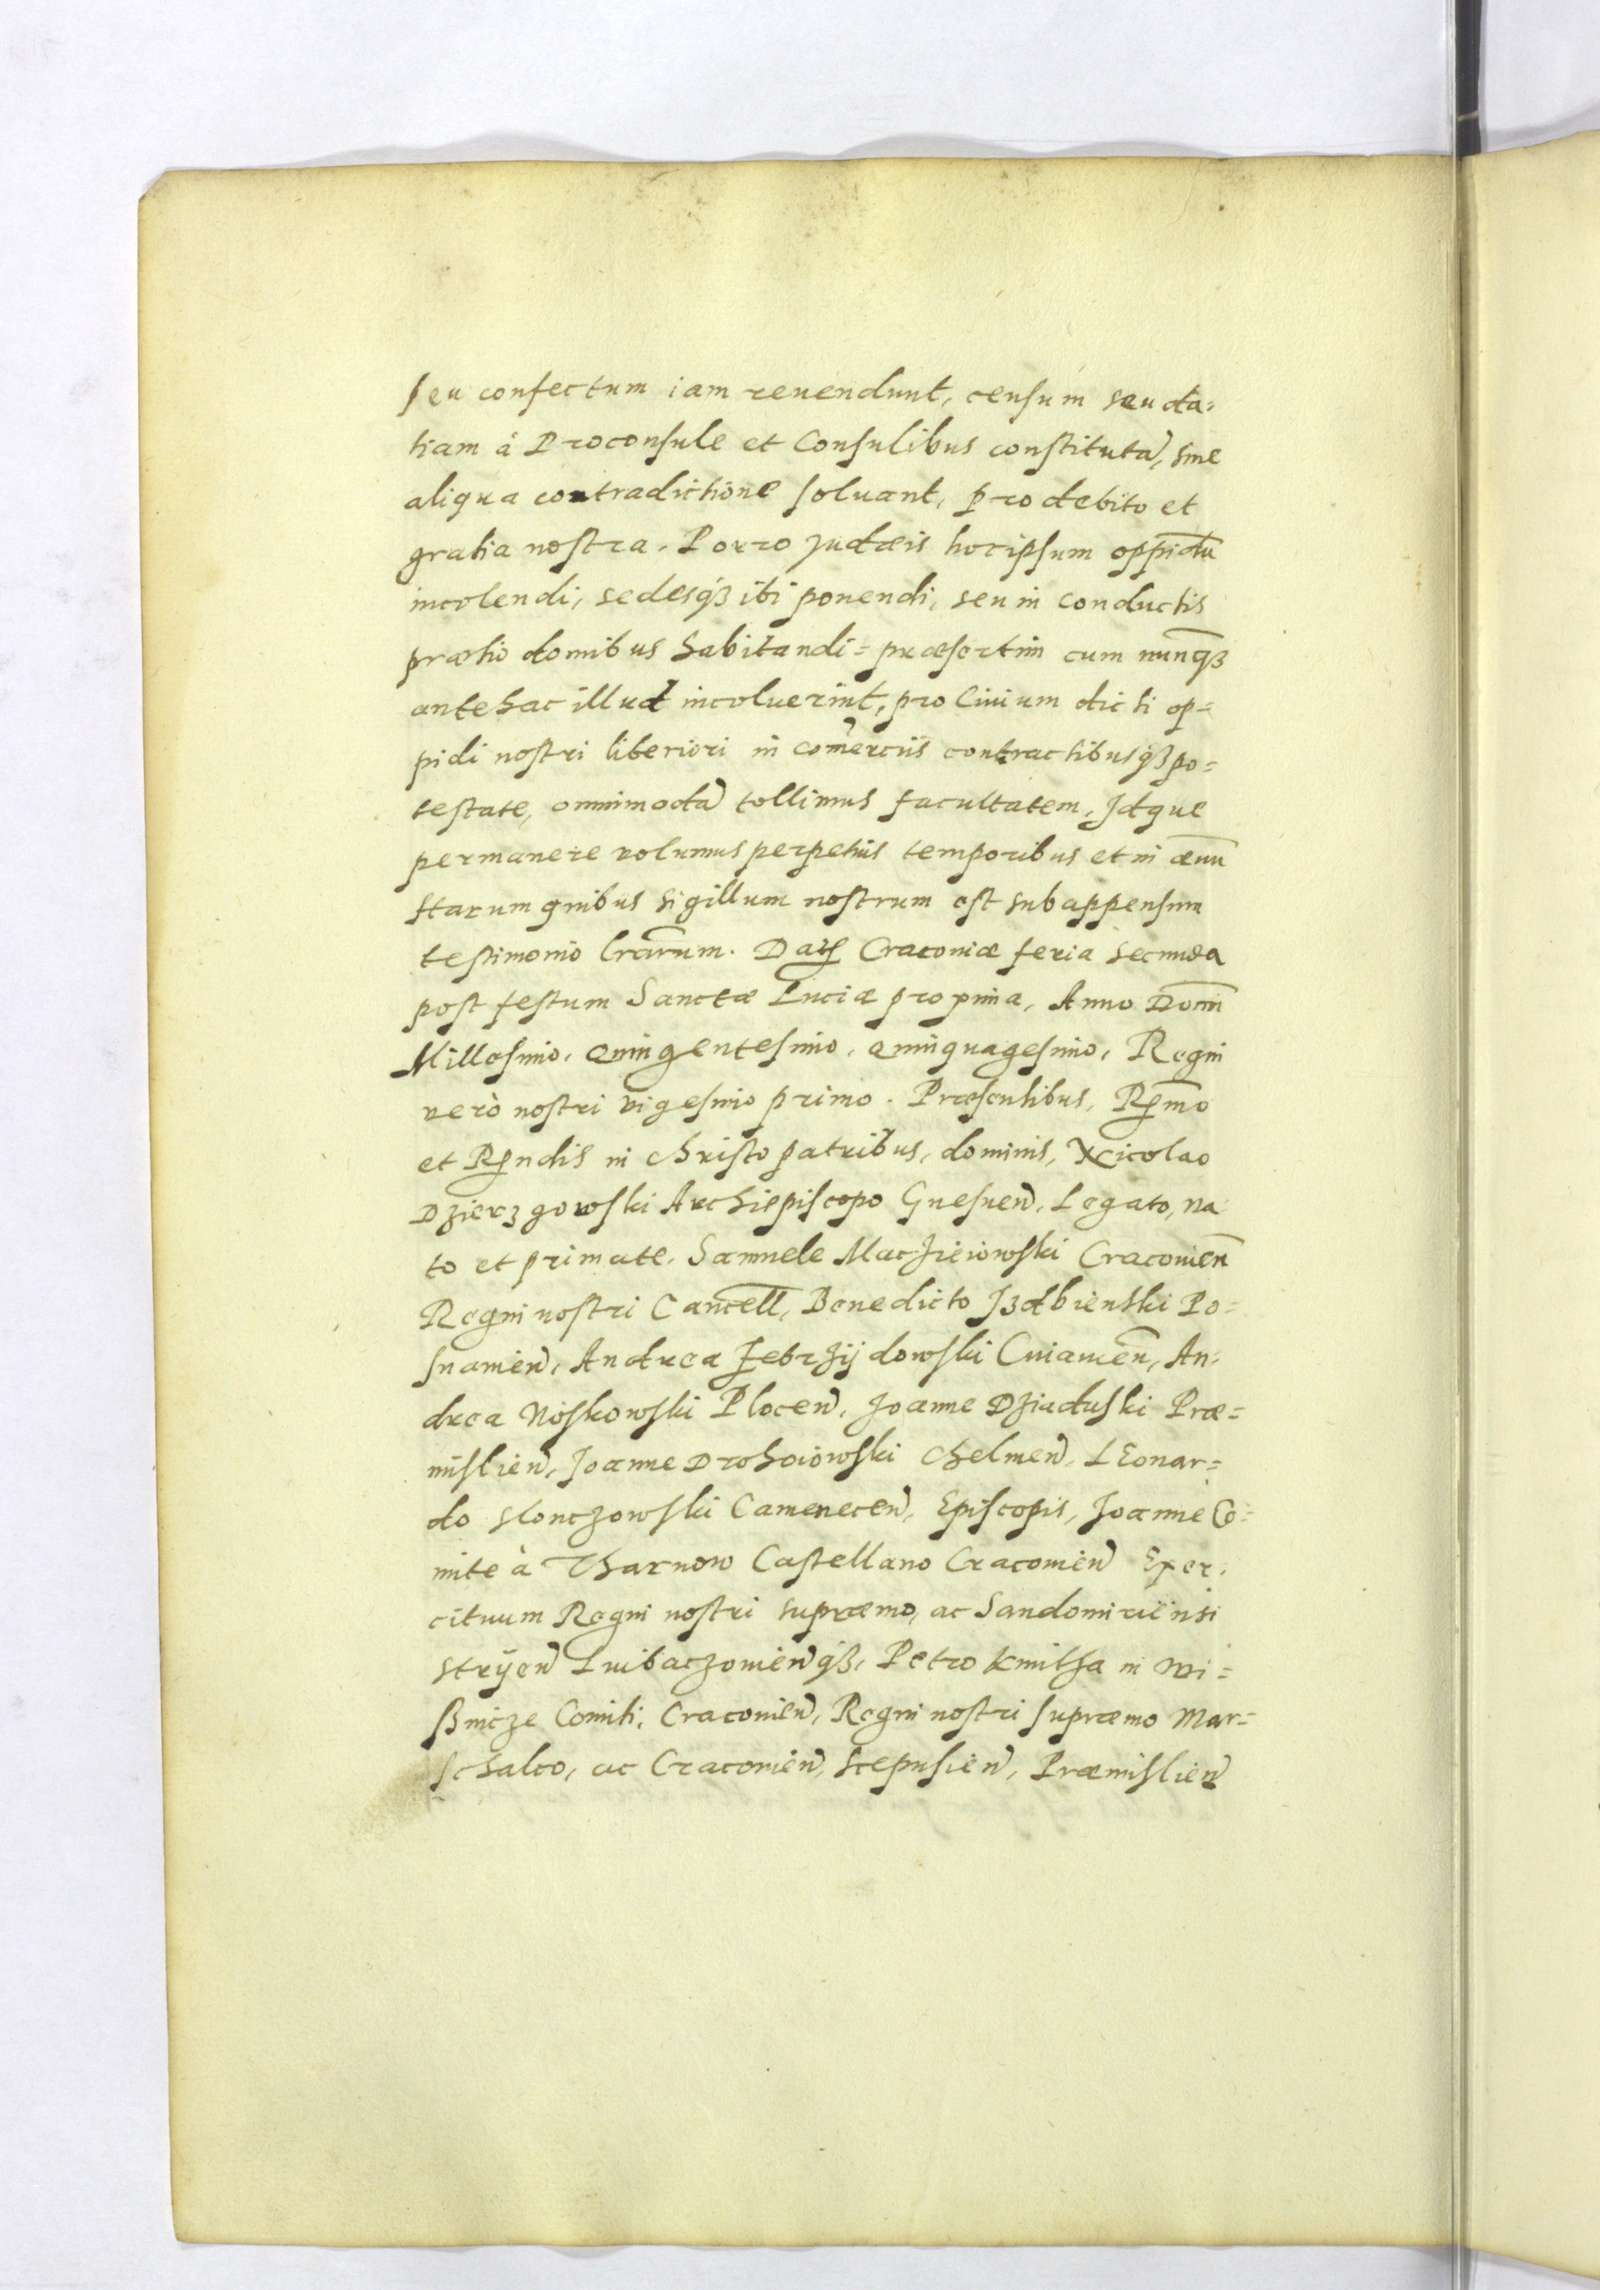 seu confectum iam reuendunt, censum seu da-
tiam à Proconsule et Consulibus constitutã, sine
aliqua contradictione soluant, pro debito et
gratia nostra. Porro Judæis hoc ipsum oppidũ
incolendi, sedesq̃ꝫ ibi ponendi, seu in conductis
prætio domibus habitandi = præsertim cum nunq̃ꝫ
antehac illud incoluerint, pro Ciuium dicti op=
pidi nostri liberiori in com̃erciis contractibusq̃ꝫ po=
testate, omnimodã tollimus facultatem, Idque
permanere volumus perpetuis temporibus et in æuũ
Harum quibus sigillum nostrum est subappensum
testimonio lrãrum. Datʒ Cracouiæ feria secunda
post festum Sanctæ Luciæ proxima, Anno Domĩ
Millesimo, quingentesimo, quinquagesimo, Regni
verò nostri vigesimo primo. Præsentibus, Rꝫmo
et Rꝫndis in Christo patribus, dominis, Nicolao
Dzierzgowski Archiepiscopo Gnesneñ, Legato, na
to et primate, Samuele Macżieiowski Cracouieñ
Regni nostri Cancell̃, Benedicto Izdbienski Po=
snanieñ, Andrea Zebrzÿdowski Cuiauieñ, An-
drea Noskowski Ploceñ, Joanne Dziaduski Præ=
mislieñ, Joanne Drohoiowski Chelmeñ, LEonar=
do Slonczowski Cameneceñ, Episcopis, Joanne Co=
mite à Tharnow Castellano Cracouieñ Exer-
cituum Regni nostri supræmo, ac Sandomiriensi
Stryieñ Luibaczouieñq̃ꝫ, Petro Kmitha in Wi=
ßnicze Comiti, Cracouieñ, Regni nostri supræmo Mar=
schalco, ac Cracouieñ, Scepusieñ, Præmislieñ